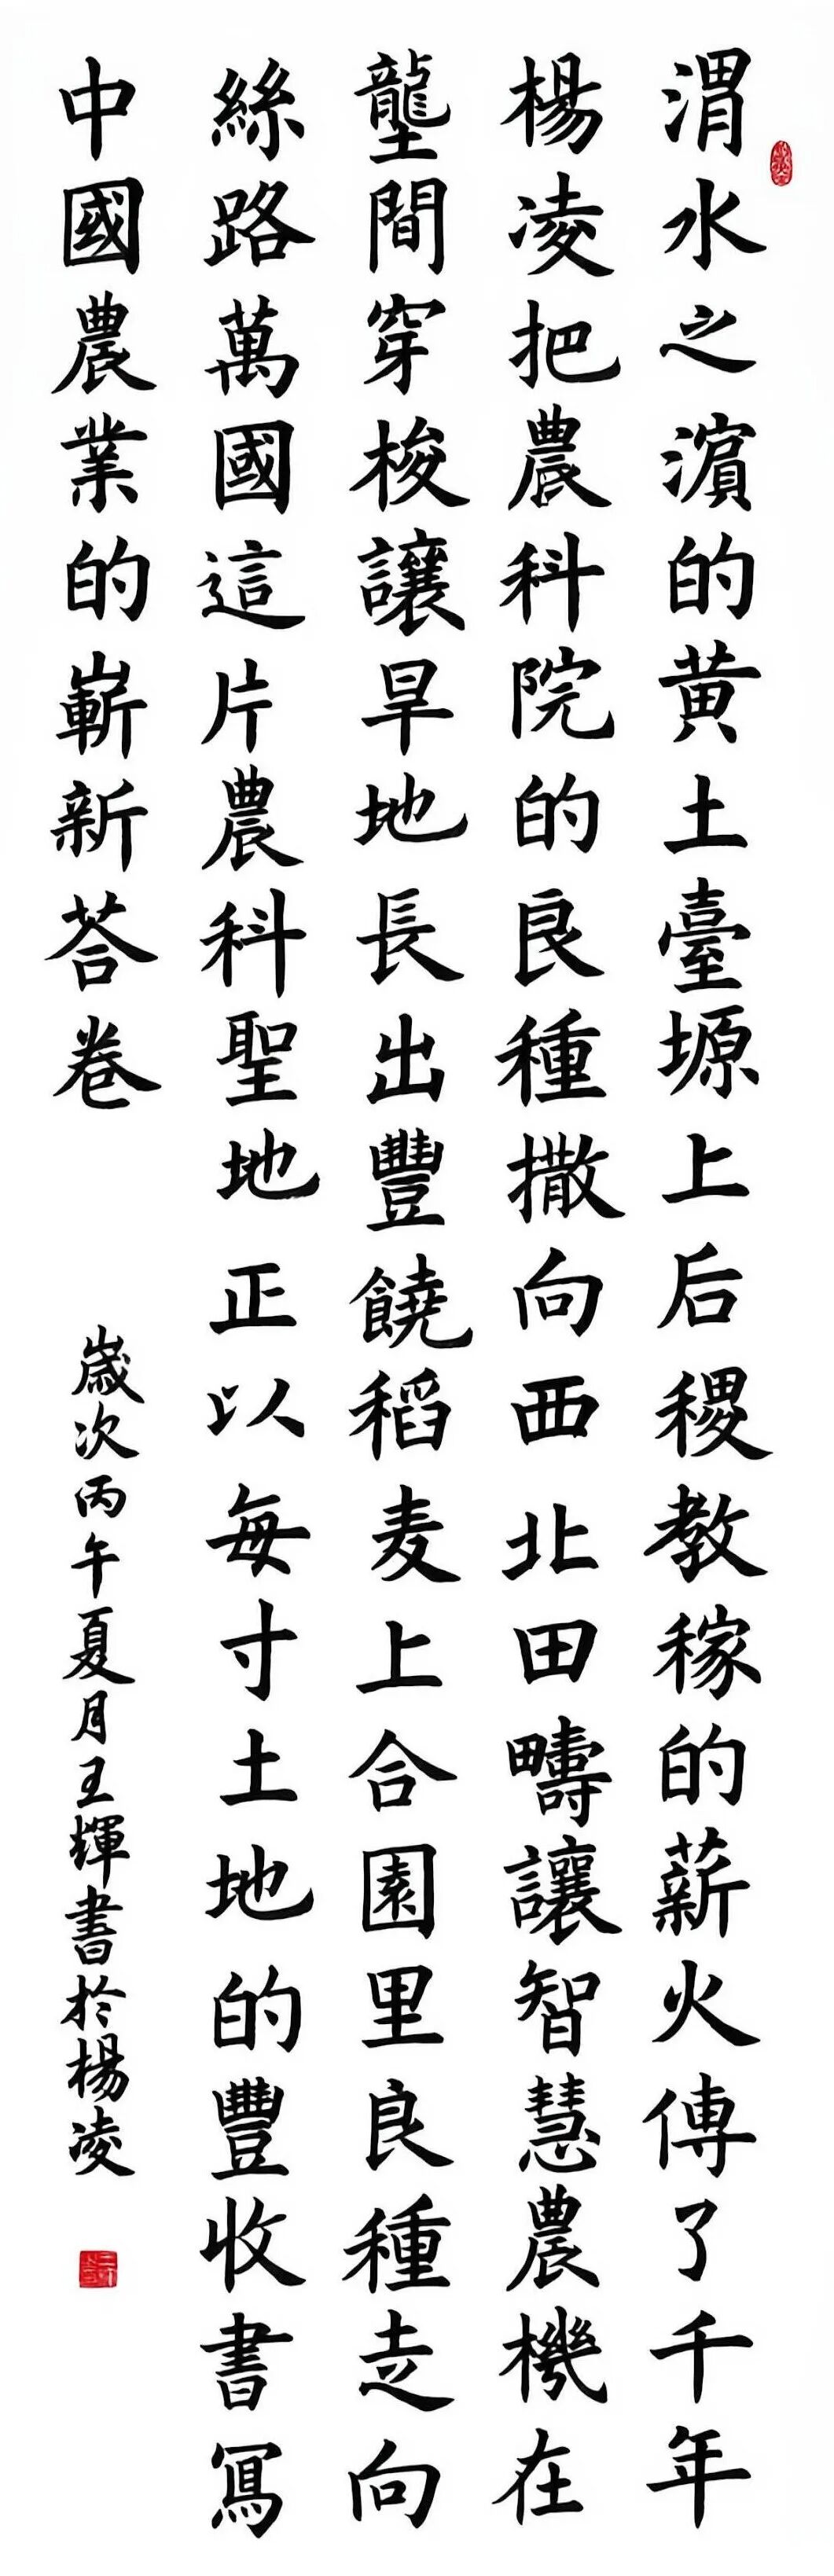 渭水之濵的黄土臺塬上后稷教稼的薪火傳了千年
楊凌把農科院的良種撒向西北田疇讓智慧農機在
壟間穿梭讓旱地長出豐饒稻麦上合園里良種走向
絲路萬國這片農科聖地正以每寸土地的豐收書寫
中國農業的嶄新荅卷
歲次丙午夏月王輝書於楊凌